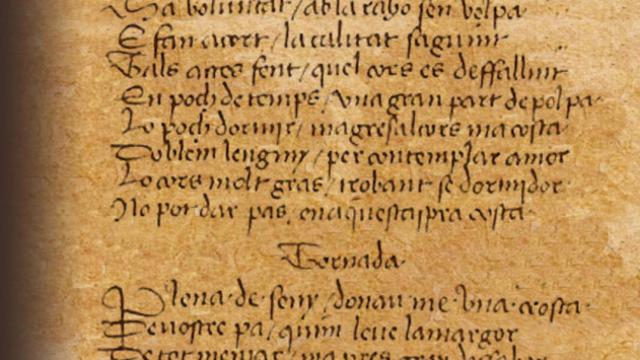 Sa voluntat / ab la raho sen volpa
E fan acort / la calitat seguint
Tals actes fent / quel cors es deffallint
En poch de temps / vna gran part de pol pa
Lo poch dormir / magresalcors macosta
Doblem lenginy / per contemplar amor
Lo cors molt gras / trobant se dormidor
No pot dar pas en aquesta aspra costa
Tornada
Plena de seny / donau me vna crosta
De vostre pa / quim leve lamargor
De tot menjar